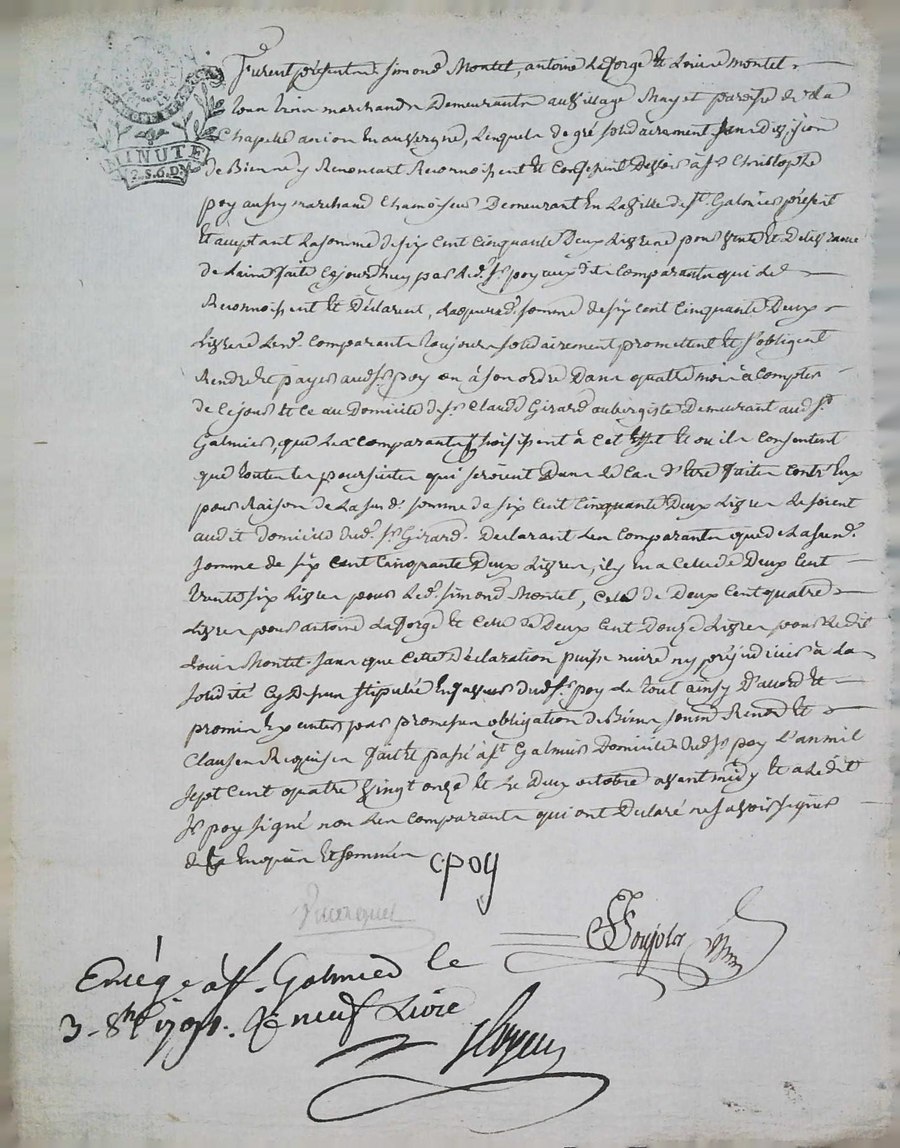 MINUTE
2.S.6.D
Furent présents simond Montel, antoine Laforge et Louis montel
tous trois marchands Demeurants au village May et paroisse de La
Chapelle en auvergne, Lesquels de gré solidairement sans division
de Biens y Renoncant Reconnoissent et Confessent Devoir à sr Christophe
poy aussy marchand Chamoiseur Demeurant En La ville de st. Galmier présent
et acceptant La somme de six Cent Cinquante Deux Livres pour vente et Delivrance
de Laine faite Cejourdhuy par Led. sr. poy aux dits Comparants qui Le
Reconnoissent et Déclarent, Laquelle d. somme de six Cent Cinquante Deux
Livres Les d. Comparants toujours solidairement promettent et s'obligent
Rendre et payer aud. sr. poy ou à son ordre Dans quatre mois à Compter
de Ce jour et Ce au Domicile de sr. Claude Girard aubergiste Demeurant aud. st.
Galmier, que Les Comparants Choisissent à Cet Effet et ou ils Consentent
que toutes les poursuites qui seroient Dans le Cas d'Etre faites Contr'Eux
pour Raison de La susd. somme de six Cent Cinquante Deux Livres Le soient
audit domicile dud. sr. Girard. Declarant Les Comparants que de La susd.
somme de six Cent Cinquante Deux Livres, il y en a Celle de Deux Cent
trente six Livres pour Led. simond Montel, Celle de Deux Cent quatre
Livres pour antoine Laforge et Celle de Deux Cent Douze Livres pour Ledit
Louis Montel. sans que Cette Déclaration puisse nuire ny préjudicier à La
solidité Cy Dessus stipulée En faveur dud. sr. poy De tout ainsy D'accord et
promis Executer par promesses obligation de Biens soum. Renon. et
Clauses Requises fait et passé à st. Galmier Domicile dud. sr poy L'an mil
sept Cent quatre vingt onze et Le Deux octobre avant midy et a Ledit
sr. poy signé non Les Comparants qui ont Declaré ne savoir signer
de Ce Enquis Et sommés
cpoy
Enreg. à st. Galmier le
3. 8bre 1791. neuf Livre